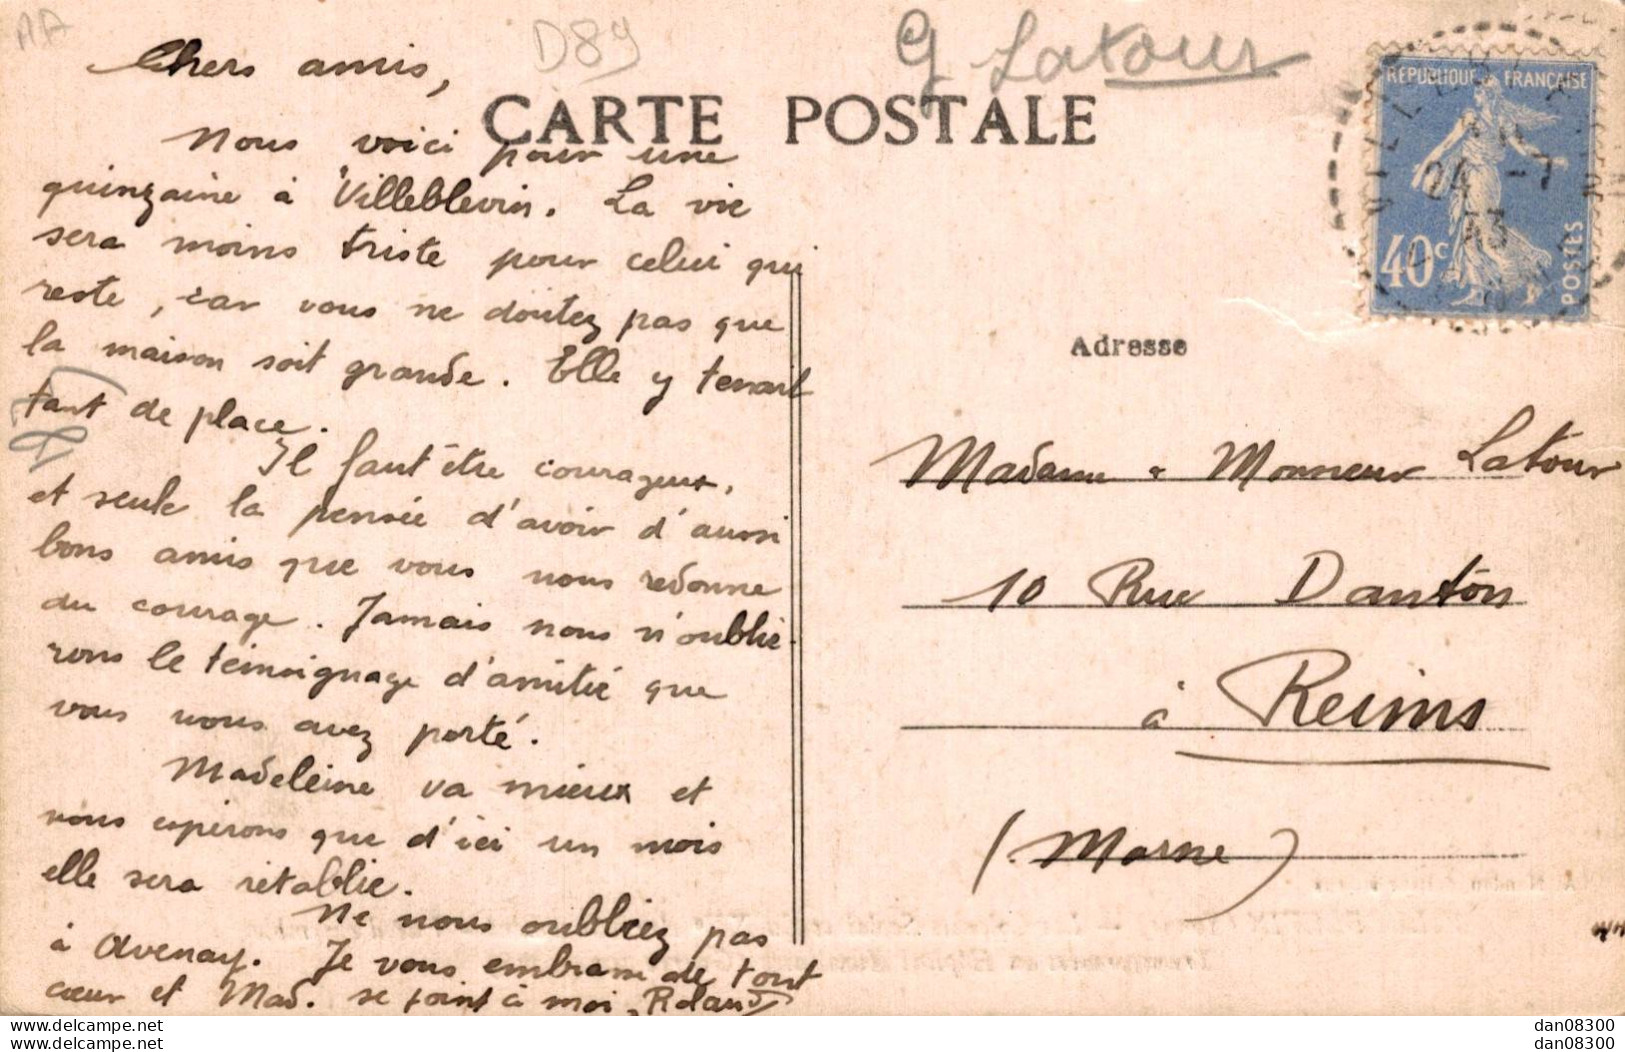 AA
D89
G Latour
Chers amis,
CARTE POSTALE
Nous voici pour une
quinzaine à Villeblevin. La vie
sera moins triste pour celui qui
reste, car vous ne doutez pas que
la maison soit grande. Elle y tenait
tant de place.
Il faut être courageux,
et seule la pensée d'avoir d'aussi
bons amis que vous nous redonne
du courage. Jamais nous n'oublie-
rons le témoignage d'amitié que
vous nous avez porté.
Madeleine va mieux et
nous espérons que d'ici un mois
elle sera rétablie.
Ne nous oubliez pas
à Avenay. Je vous embrasse de tout
cœur et Mad. se joint à moi, Roland
RÉPUBLIQUE FRANÇAISE
24 -7
43
40c
POSTES
Adresse
Madame & Monsieur Latour
10 Rue Danton
à Reims
(Marne)
www.delcampe.net
www.delcampe.net
dan08300
dan08300